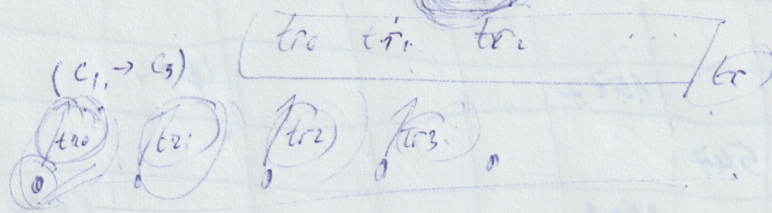 tr₀ tr₁ tr₂ ... tr
(C₁ → C₃)
tr₀ tr₁ tr2 tr3
0 0 0 0 0